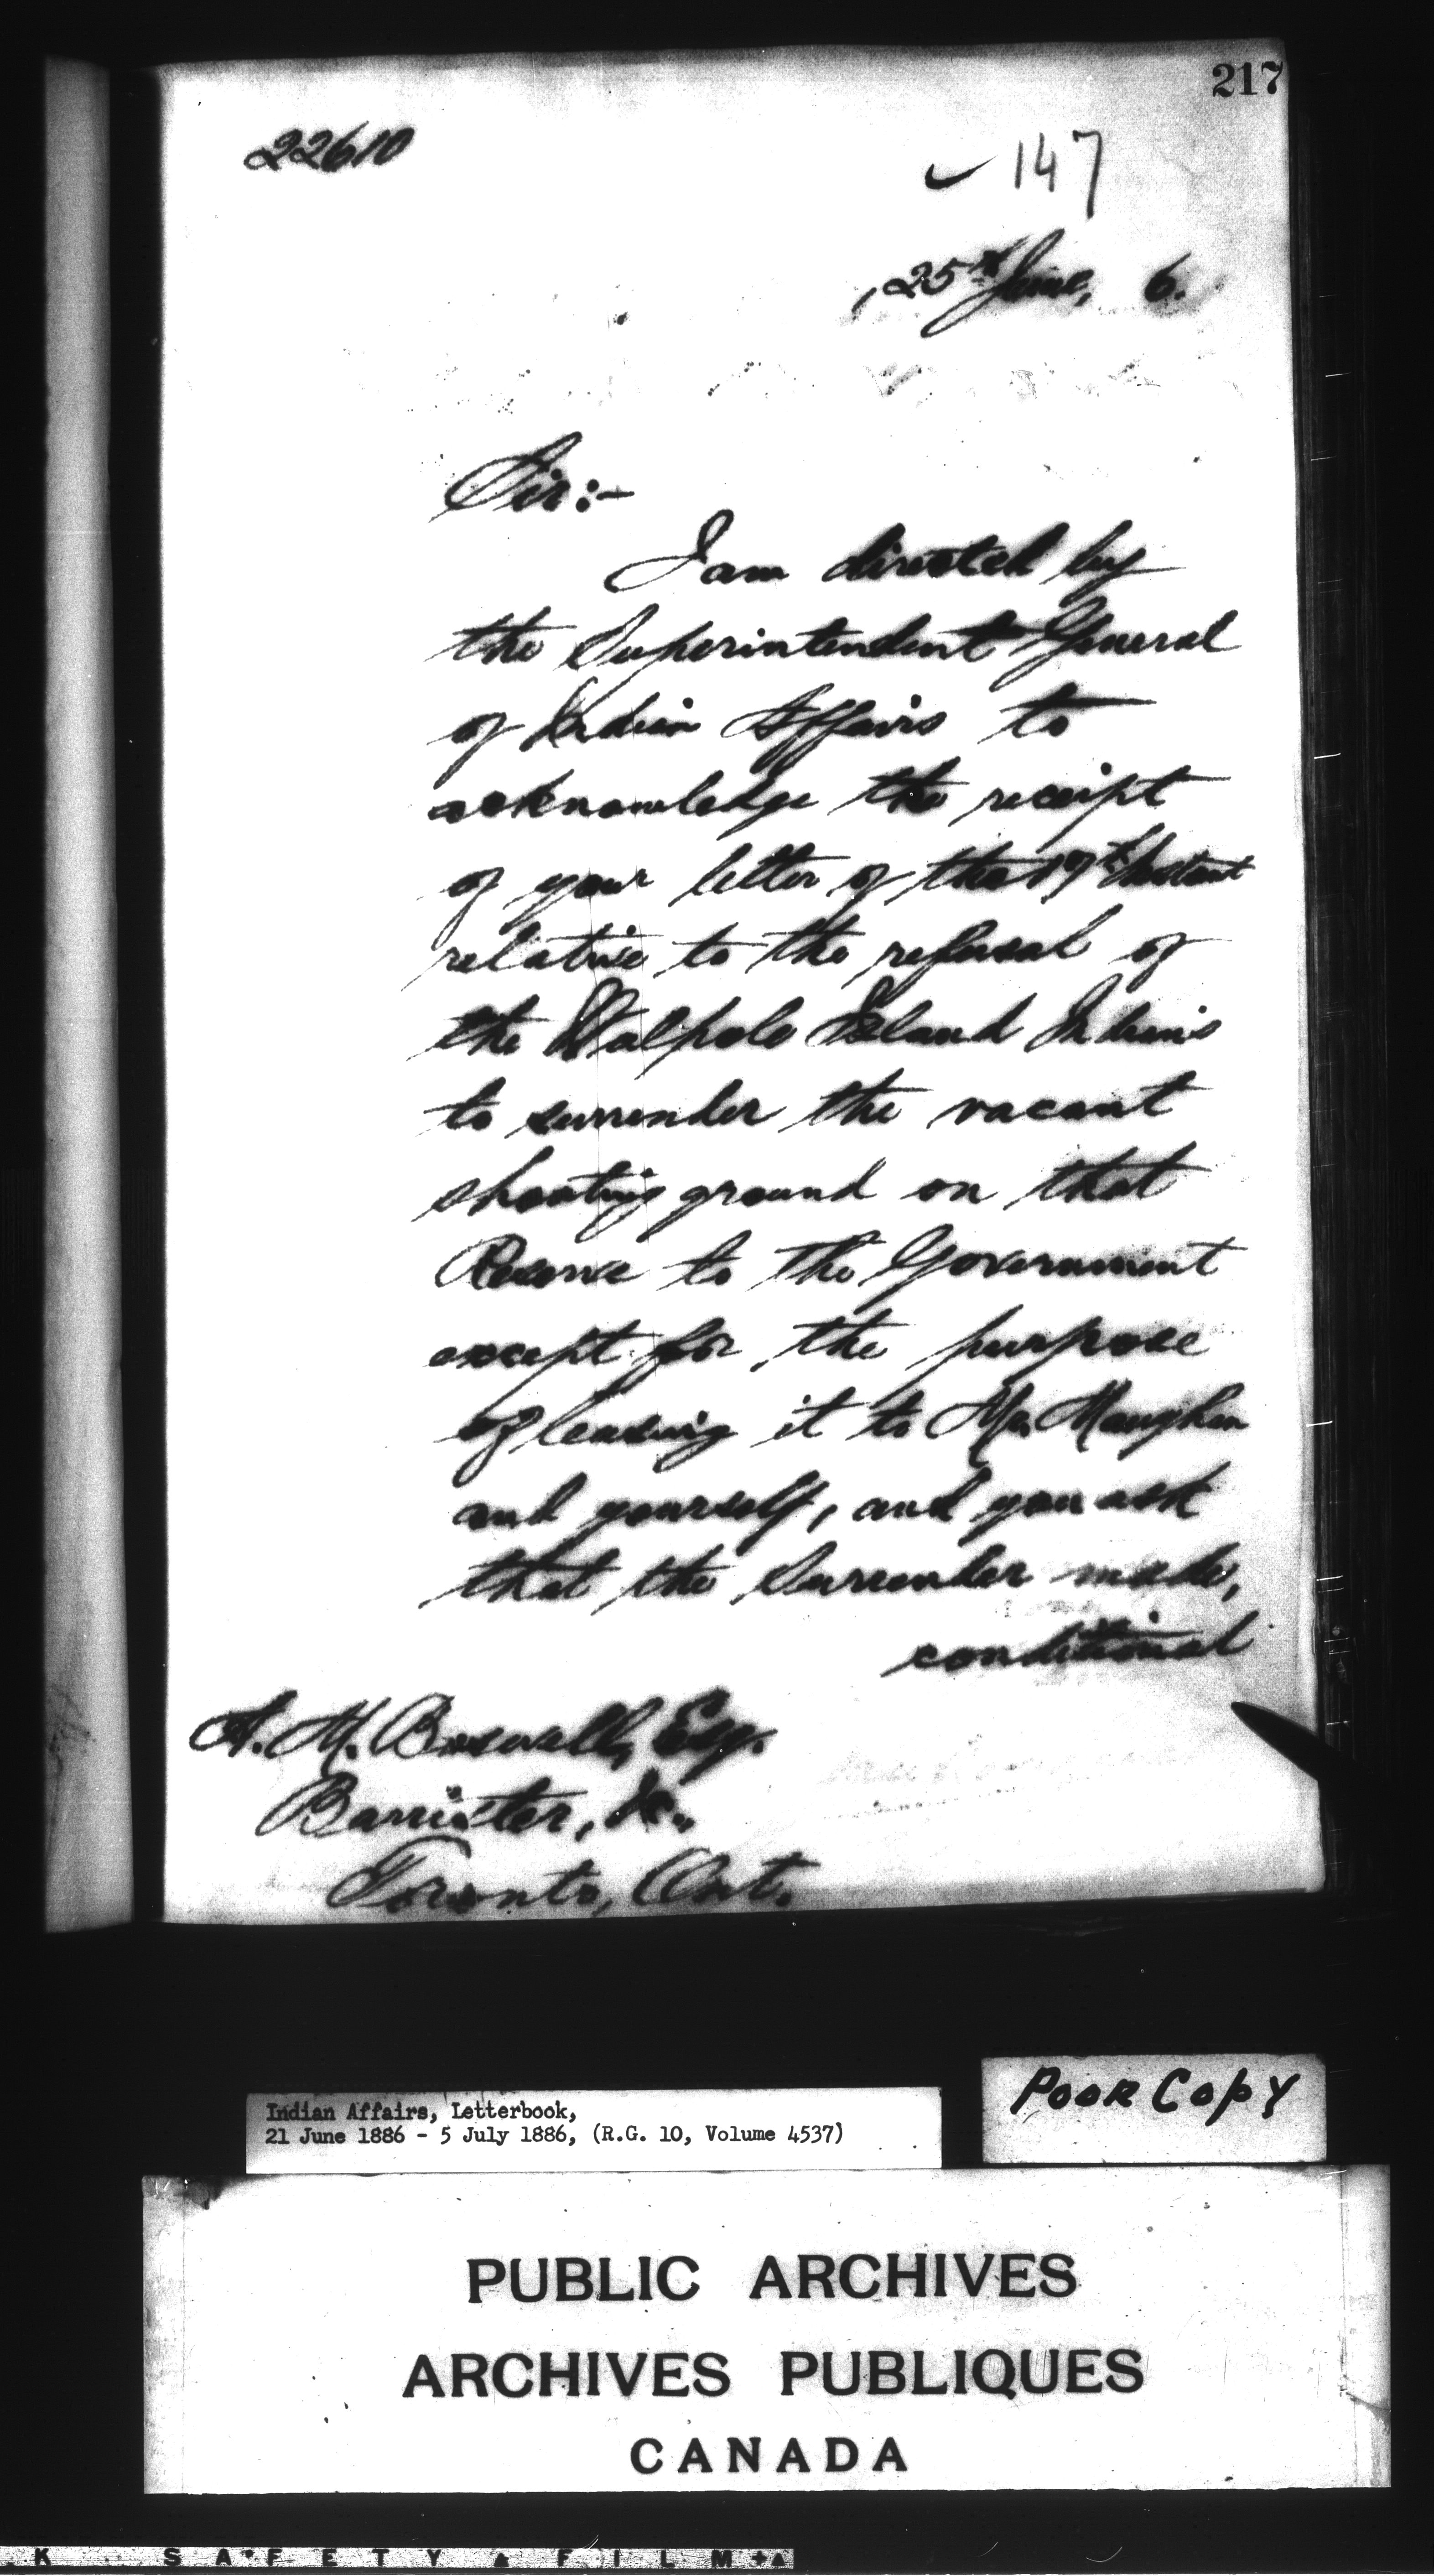 217
22610
147
, 25th June, 6.
Sir:-
I am directed by
the Superintendent General
of Indian Affairs to
acknowledge the receipt
of your letter of the 17th Instant
relative to the refusal of
the Walpole Island Indians
to surrender the vacant
shooting ground on that
Reserve to the Government
except for the purpose
of leasing it to Mr. Maughan
and yourself, and you ask
that the Surrender made,
conditional
A. M. Boswell, Esq.
Barrister, &c.,
Toronto, Ont.
Poor Copy
Indian Affairs, Letterbook,
21 June 1886 - 5 July 1886, (R.G. 10, Volume 4537)
PUBLIC ARCHIVES
ARCHIVES PUBLIQUES
CANADA
K SAFETY FILM